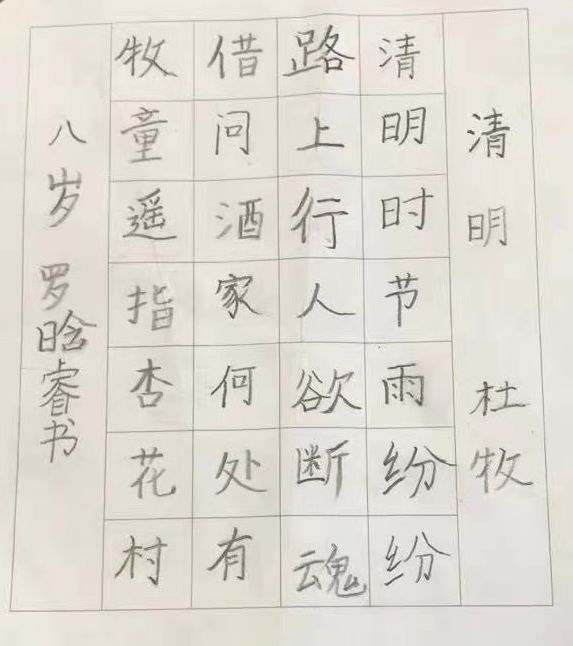 清明 杜牧
清明时节雨纷纷
路上行人欲断魂
借问酒家何处有
牧童遥指杏花村
八岁 罗晗睿书